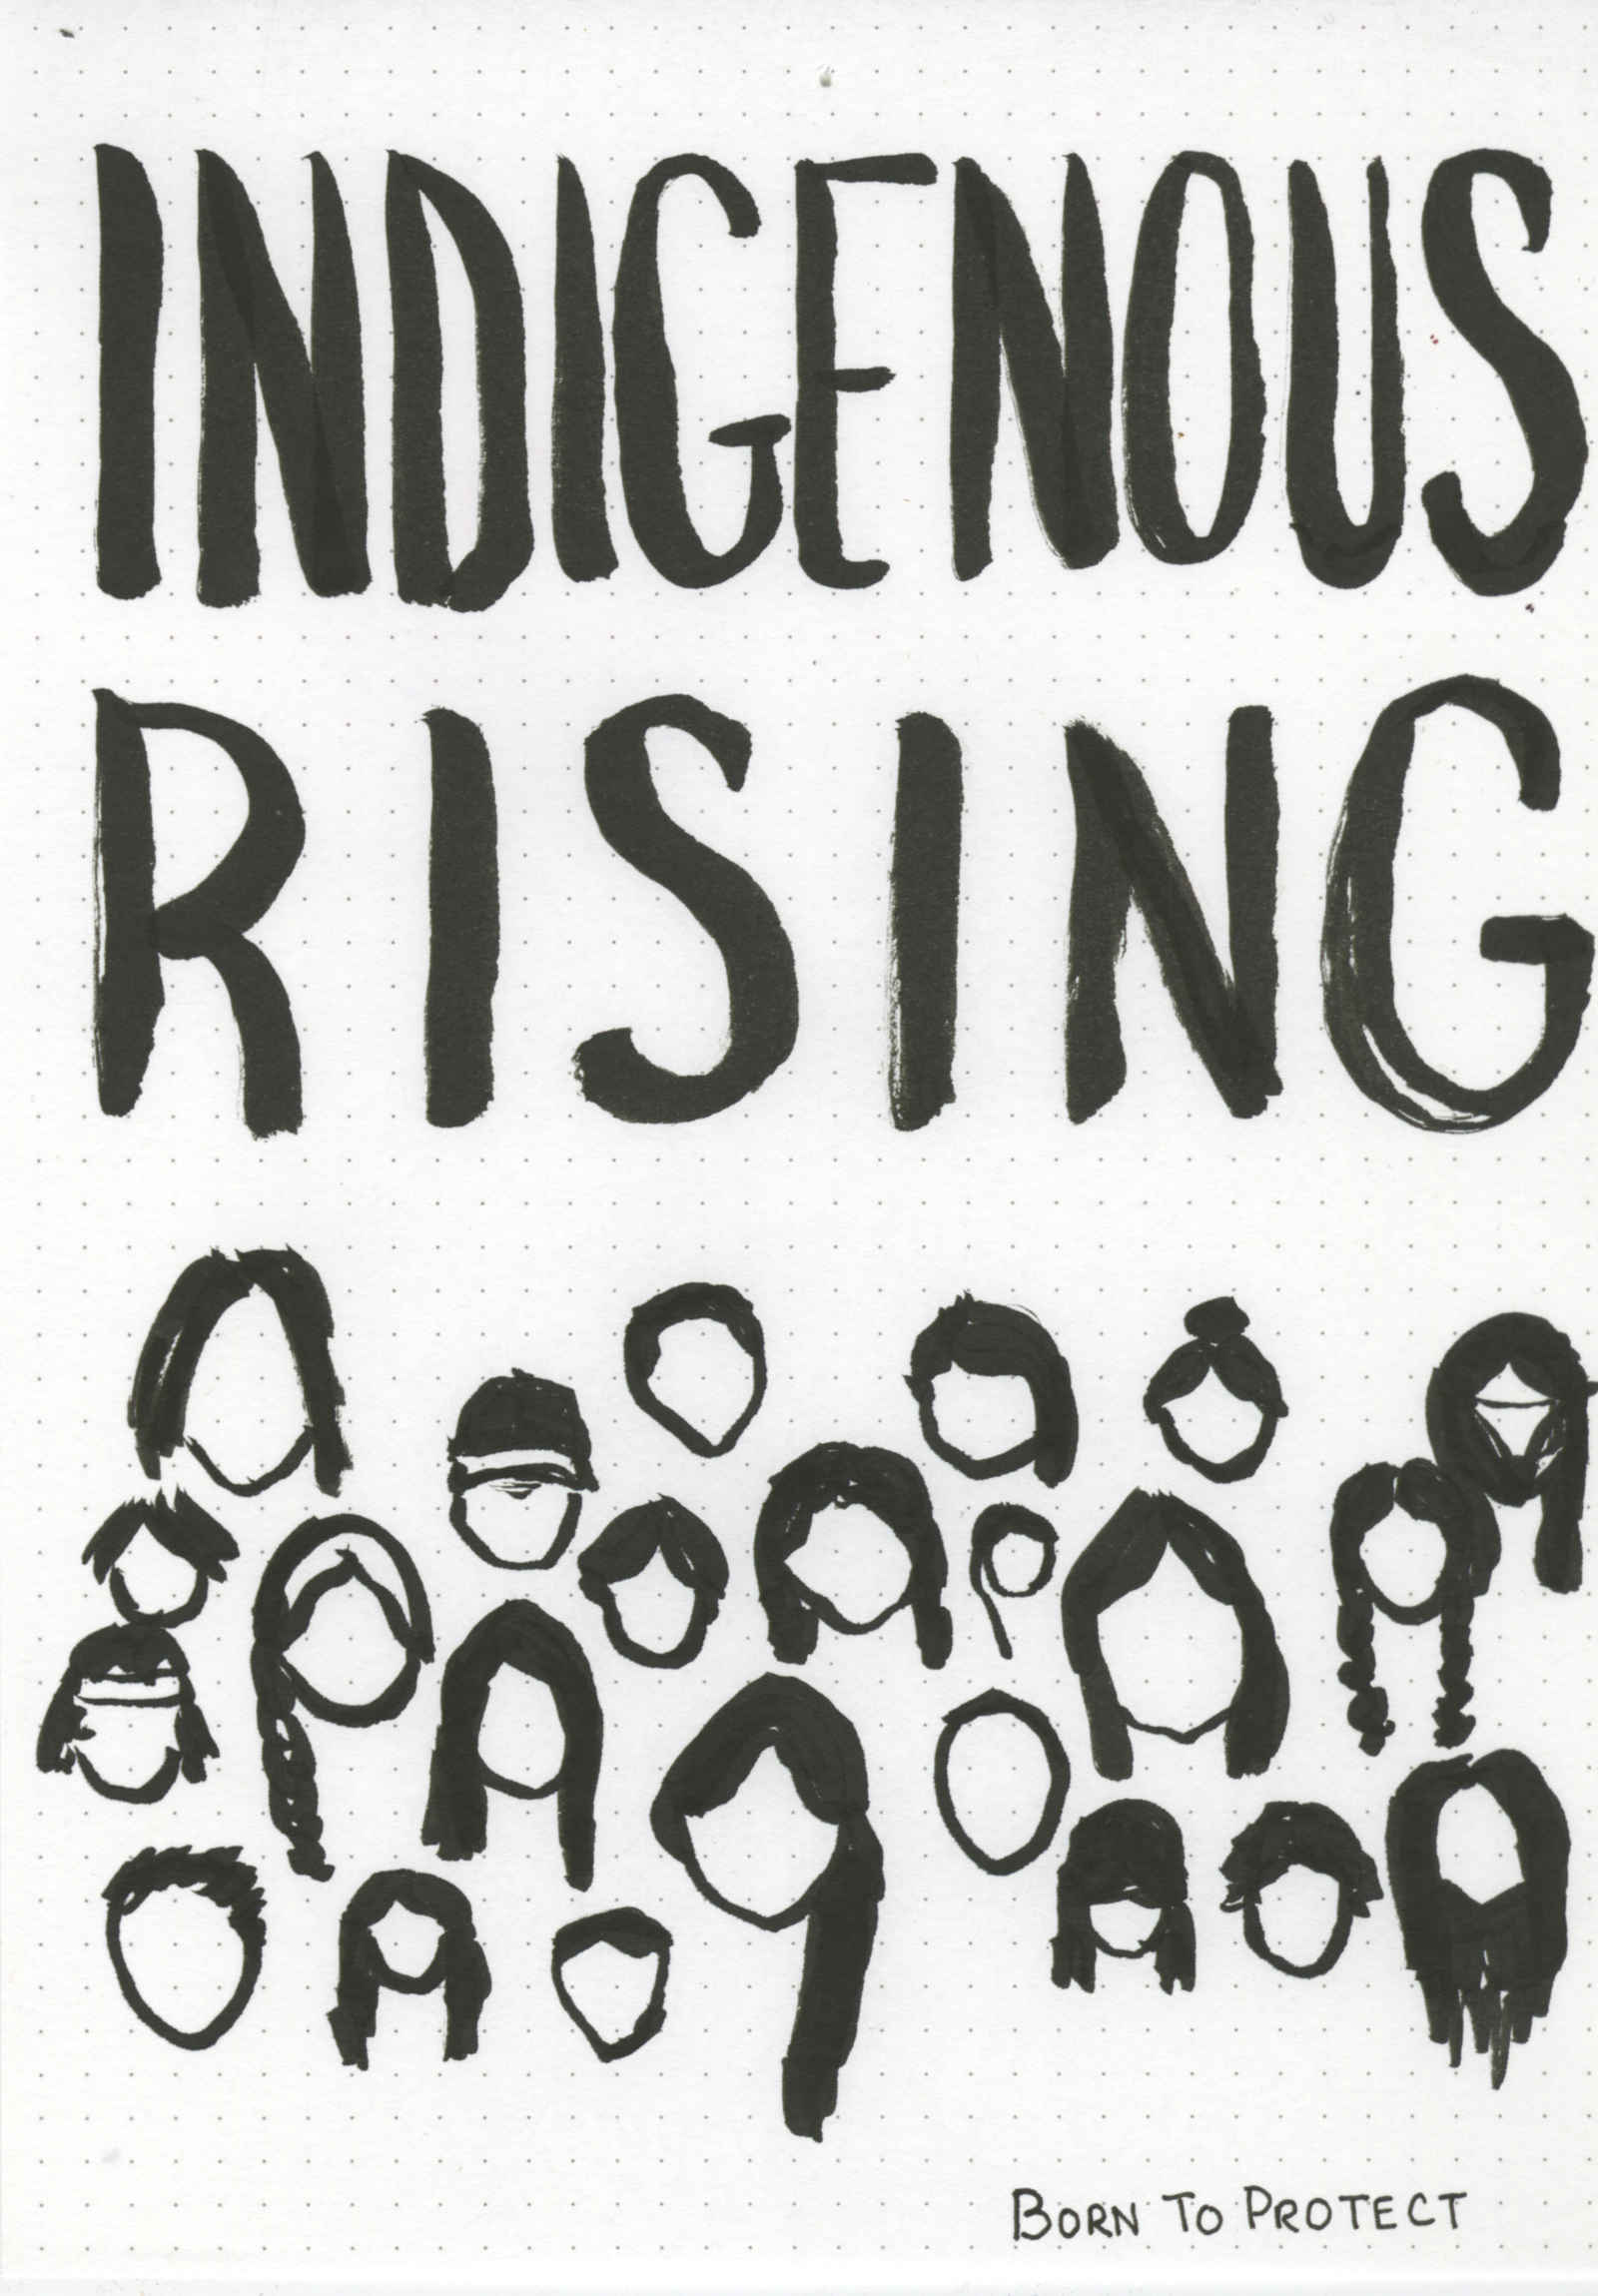 INDIGENOUS
RISING
BORN TO PROTECT